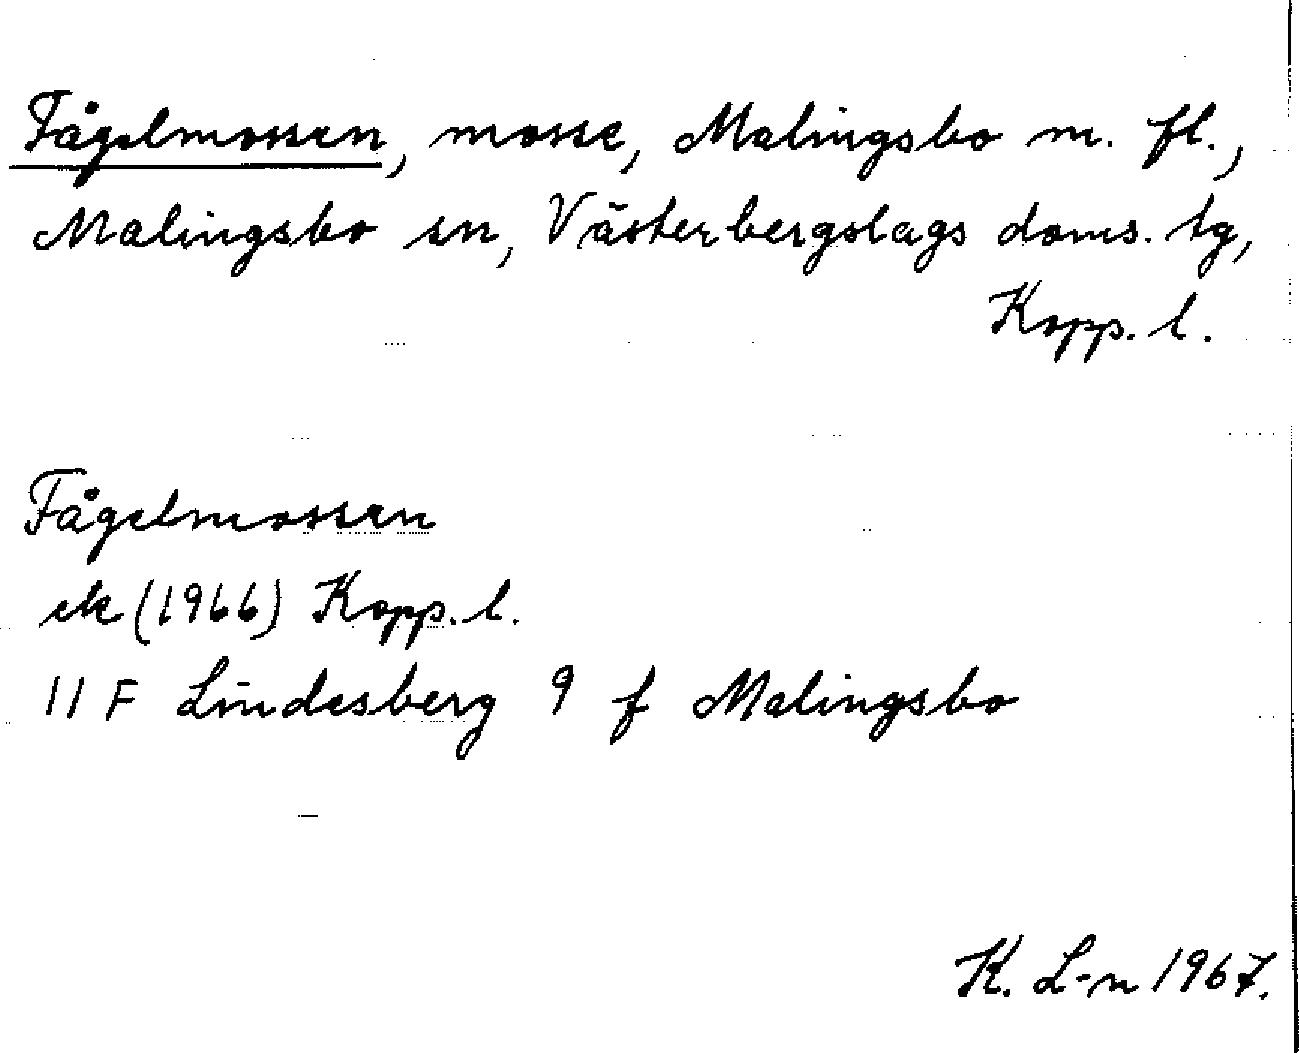 Fågelmossen, mosse, Malingsbo m. fl.,
Malingsbo sn, Västerbergslags doms. tg,
Kopp. l.
Fågelmossen
ek (1966) Kopp. l.
11 F Lindesberg 9 f Malingsbo
K. L-n 1967.